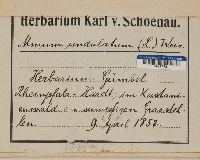 Herbarium Karl v. Schoenau.
Mnium undulatum (L.) Weis.
Herbarium: Gümbel
Rheinpfalz: Hardt; im Kastani-
enwald an sumpfigen Grasstel-
len. 9. April 1857.